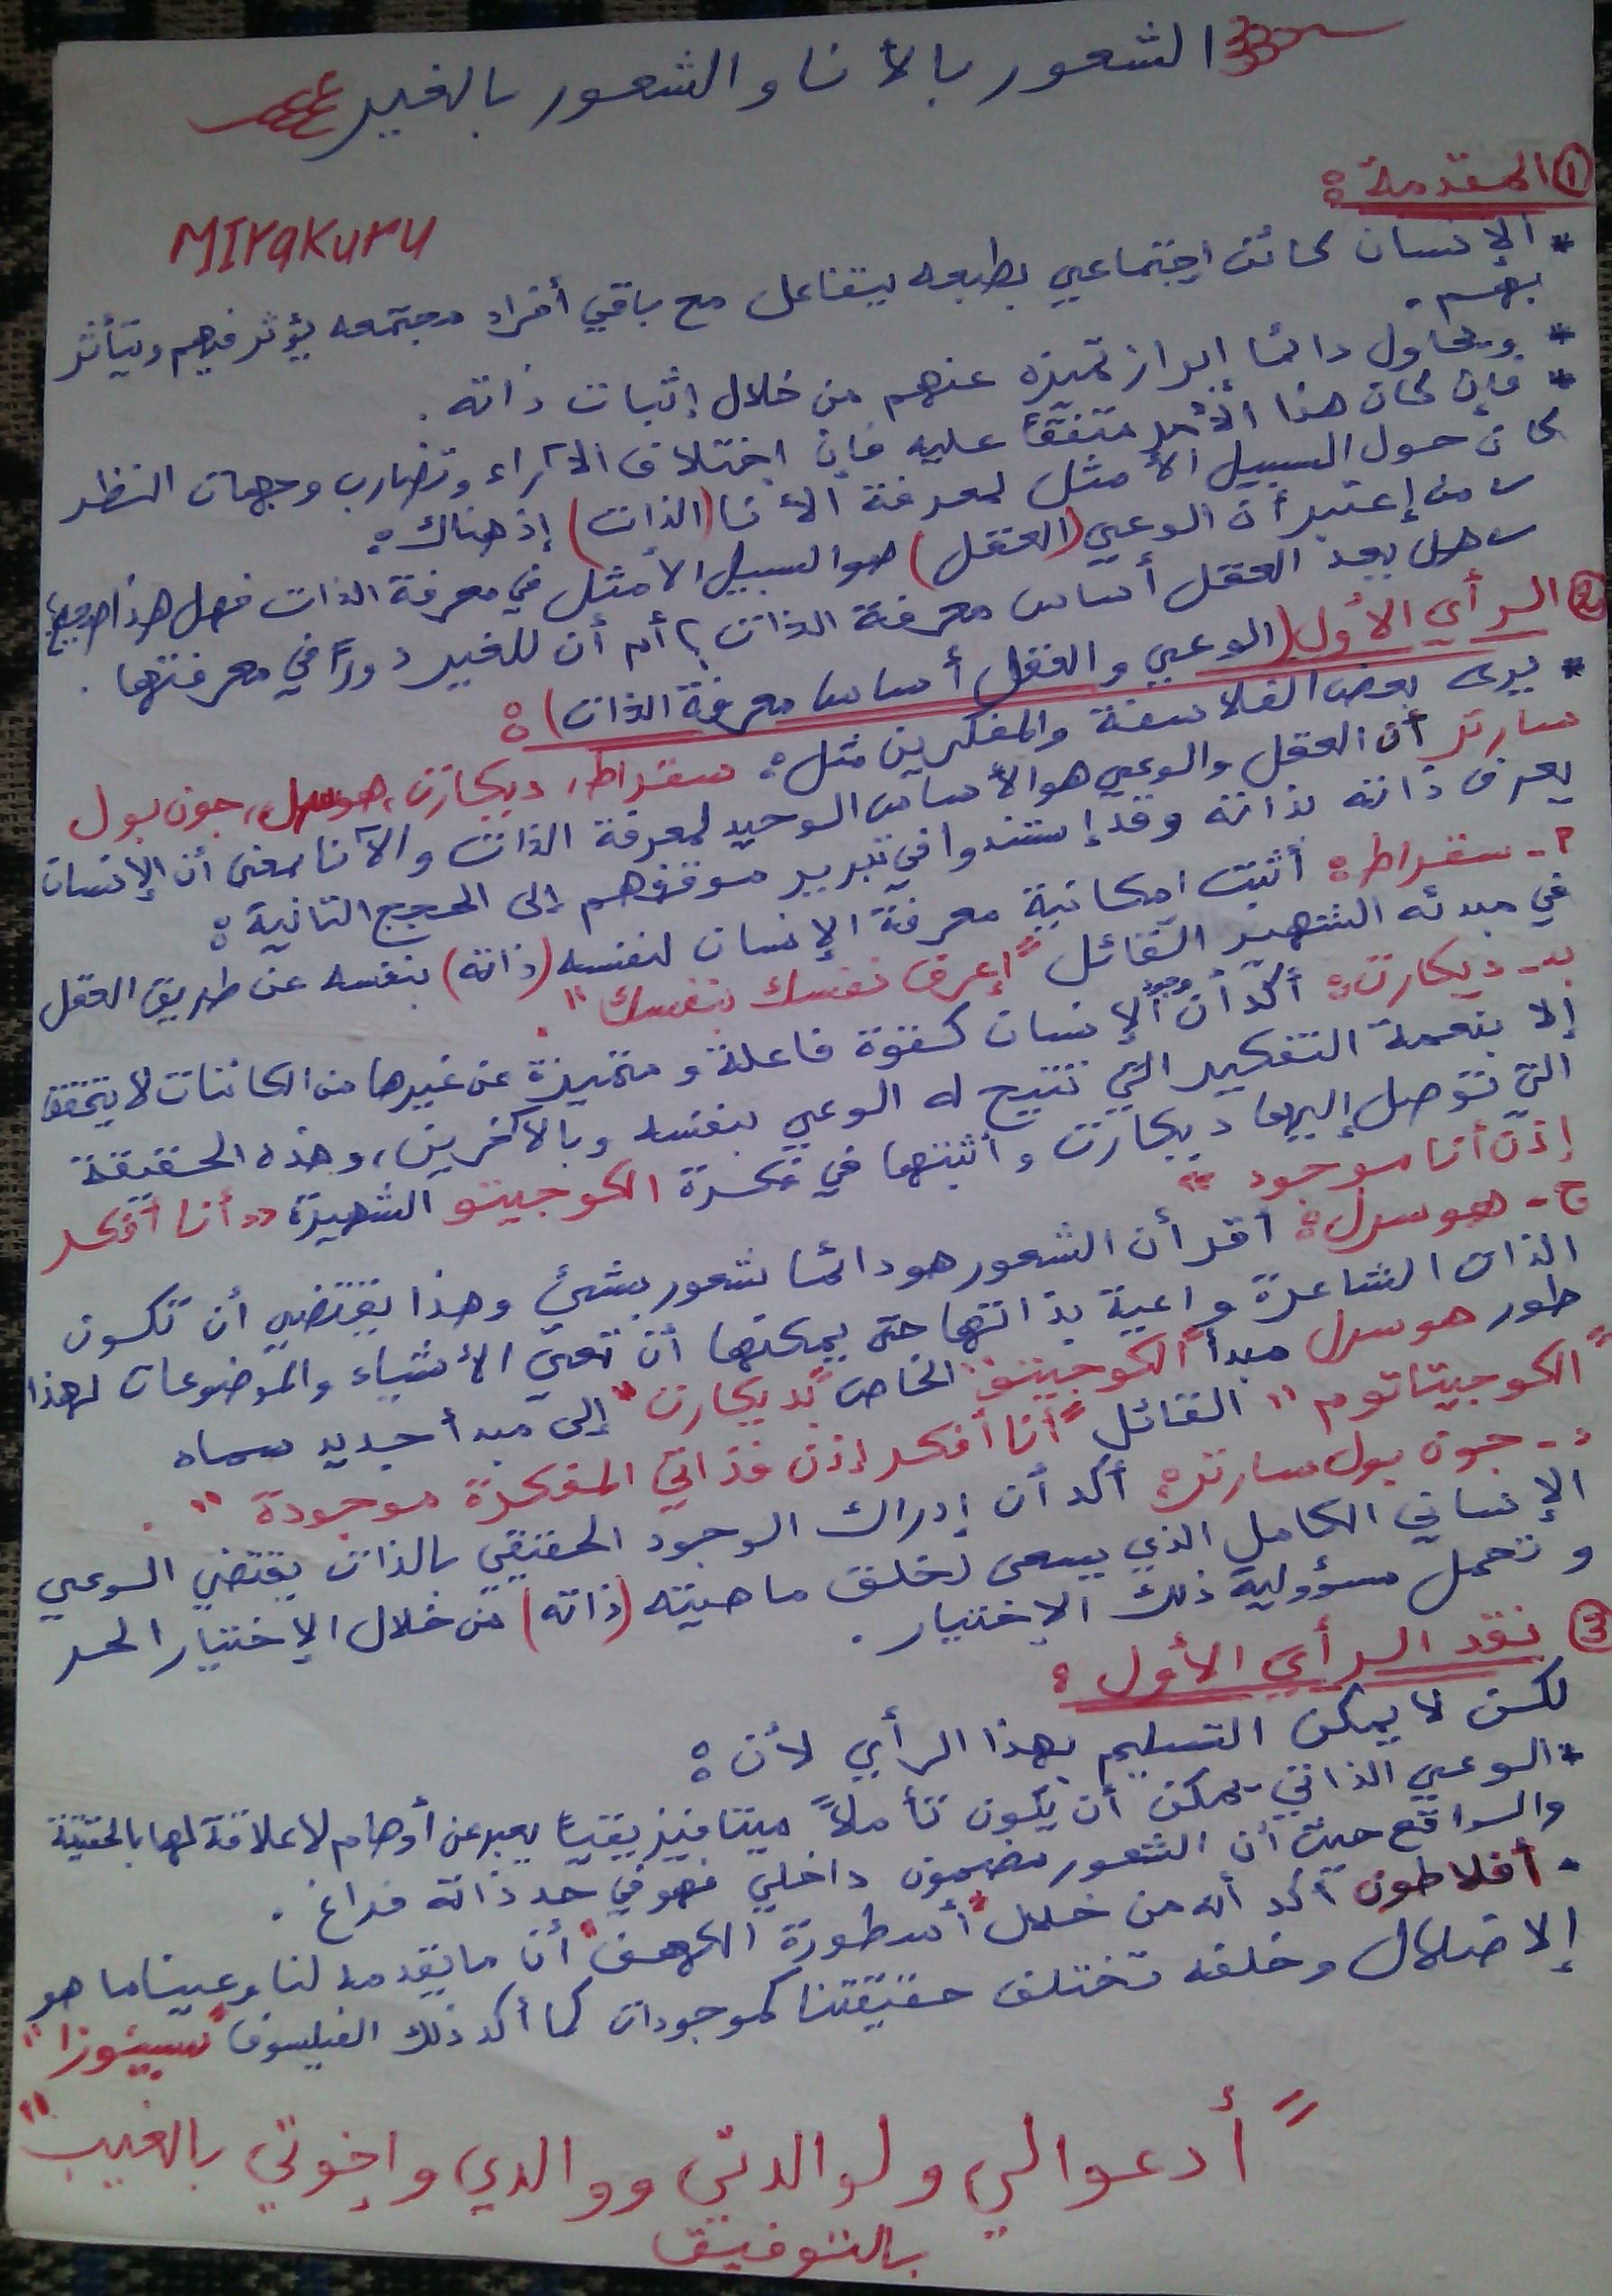 الشعور بالأنا والشعور بالغير
① المقدمة :
MIrakuru
* الإنسان كائن اجتماعي بطبعه يتفاعل مع باقي أفراد مجتمعه يؤثر فيهم ويتأثر
بهم .
* ويحاول دائما إبراز تميزه عنهم من خلال إثبات ذاته .
* فإن كان هذا الأمر متفقاً عليه فإن اختلاف الآراء وتضارب وجهات النظر
كان حول السبيل الأمثل لمعرفة الأنا (الذات) إذ هناك :
من إعتبر أن الوعي (العقل) هو السبيل الأمثل في معرفة الذات فهل هذا صحيح؟
هل يعد العقل أساس معرفة الذات ؟ أم أن للغير دوراً في معرفتها .
② الرأي الأول (الوعي والعقل أساس معرفة الذات) :
* يرى بعض الفلاسفة والمفكرين مثل : سقراط، ديكارت، هوسرل، جون بول
سارتر أن العقل والوعي هو الأساس الوحيد لمعرفة الذات والأنا بمعنى أن الإنسان
يعرف ذاته بذاته وقد إستندوا في تبرير موقفهم إلى الحجج التانية :
أ- سقراط : أثبت امكانية معرفة الإنسان لنفسه (ذاته) بنفسه عن طريق العقل
في مبدئه الشهير القائل "إعرف نفسك بنفسك" .
ب- ديكارت : أكد أن وجود الإنسان كقوة فاعلة ومتميزة عن غيرها من الكائنات لا يتحقق
إلا بنعمة التفكير التي تتيح له الوعي بنفسه وبالآخرين، وهذه الحقيقة
التي توصل إليها ديكارت وأثبتها في فكرة الكوجيتو الشهيرة "أنا أفكر
إذن أنا موجود"
ج- هوسرل : أقر أن الشعور هو دائما شعور بشيء وهذا يقتضي أن تكون
الذات الشاعرة واعية بذاتها حتى يمكنها أن تعي الأشياء والموضوعات لهذا
طور هوسرل مبدأ "الكوجيتو" الخاص "بديكارت" إلى مبدأ جديد سماه
"الكوجيتاتوم" القائل "أنا أفكر إذن فذاتي المفكرة موجودة" .
د- جون بول سارتر : أكد أن إدراك الوجود الحقيقي بالذات يقتضي الوعي
الإنساني الكامل الذي يسعى لخلق ماهيته (ذاته) من خلال الإختيار الحر
وتحمل مسؤولية ذلك الإختيار .
③ نقد الرأي الأول :
لكن لا يمكن التسليم بهذا الرأي لأن :
* الوعي الذاتي يمكن أن يكون تأملاً ميتافيزيقيا يعبر عن أوهام لا علاقة لها بالحقيقة
والواقع حيث أن الشعور مضمون داخلي فهو في حد ذاته فراغ .
- أفلاطون أكد أنه من خلال "أسطورة الكهف" أن ما يقدمه لنا وعينا ما هو
إلا ضلال وخلفه تختلف حقيقتنا كموجودات كما أكد ذلك الفيلسوف "سبينوزا"
"أدعوا لي ولوالدتي ووالدي وإخوتي بالغيب"
بالتوفيق